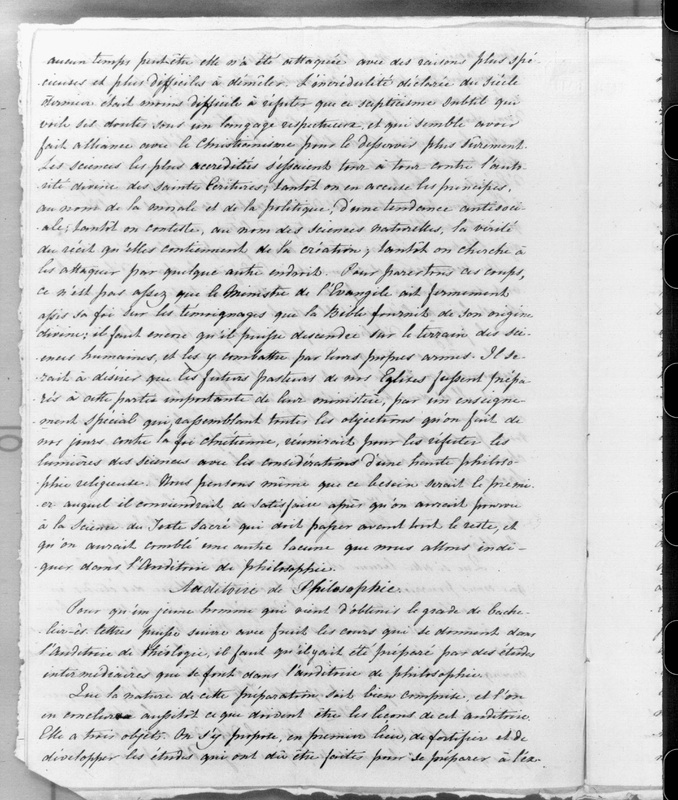 aucun temps peut-être elle n'a été attaquée avec des raisons plus spé-
cieuses et plus difficiles à démêler. L'incrédulité déclarée du siècle
dernier était moins difficile à réfuter que ce scepticisme subtil qui
voile ses doutes sous un langage respectueux, et qui semble avoir
fait alliance avec le Christianisme pour le desservir plus sûrement.
Les sciences les plus accréditées s'essaient tour à tour contre l'auto-
rité divine des saintes Ecritures; tantôt on en accuse les principes,
au nom de la morale et de la politique, d'une tendance antisoci-
ale; tantôt on conteste, au nom des sciences naturelles, la vérité
du récit qu'elles contiennent de la création; tantôt on cherche à
les attaquer par quelque autre endroit. Pour parer tous ces coups,
ce n'est pas assez que le Ministre de l'Evangile ait fermement
assis sa foi sur les témoignages que la Bible fournit de son origine
divine; il faut encore qu'il puisse descendre sur le terrain des sci-
ences humaines, et les y combattre par leurs propres armes. Il se-
rait à désirer que les futurs pasteurs de nos Eglises fussent prépa-
rés à cette partie importante de leur ministère, par un enseigne-
ment spécial qui, rassemblant toutes les objections qu'on fait de
nos jours contre la foi chrétienne, réunirait pour les réfuter les
lumières des sciences avec les considérations d'une haute philoso-
phie religieuse. Nous pensons même que ce besoin serait le premi-
er auquel il conviendrait de satisfaire après qu'on aurait pourvu
à la Science du Texte sacré qui doit passer avant tout le reste, et
qu'on aurait comblé une autre lacune que nous allons indi-
quer dans l'Auditoire de philosophie.
Auditoire de Philosophie.
Pour qu'un jeune homme qui vient d'obtenir le grade de Bache-
lier-ès-lettres puisse suivre avec fruit les cours qui se donnent dans
l'Auditoire de Théologie, il faut qu'il y ait été préparé par des études
intermédiaires qui se font dans l'auditoire de philosophie.
Que la nature de cette préparation soit bien comprise, et l'on
en conclura aussitôt ce que doivent être les leçons de cet auditoire.
Elle a trois objets. On s'y propose, en premier lieu, de fortifier et de
développer les études qui ont dû être faites pour se préparer à l'ex-